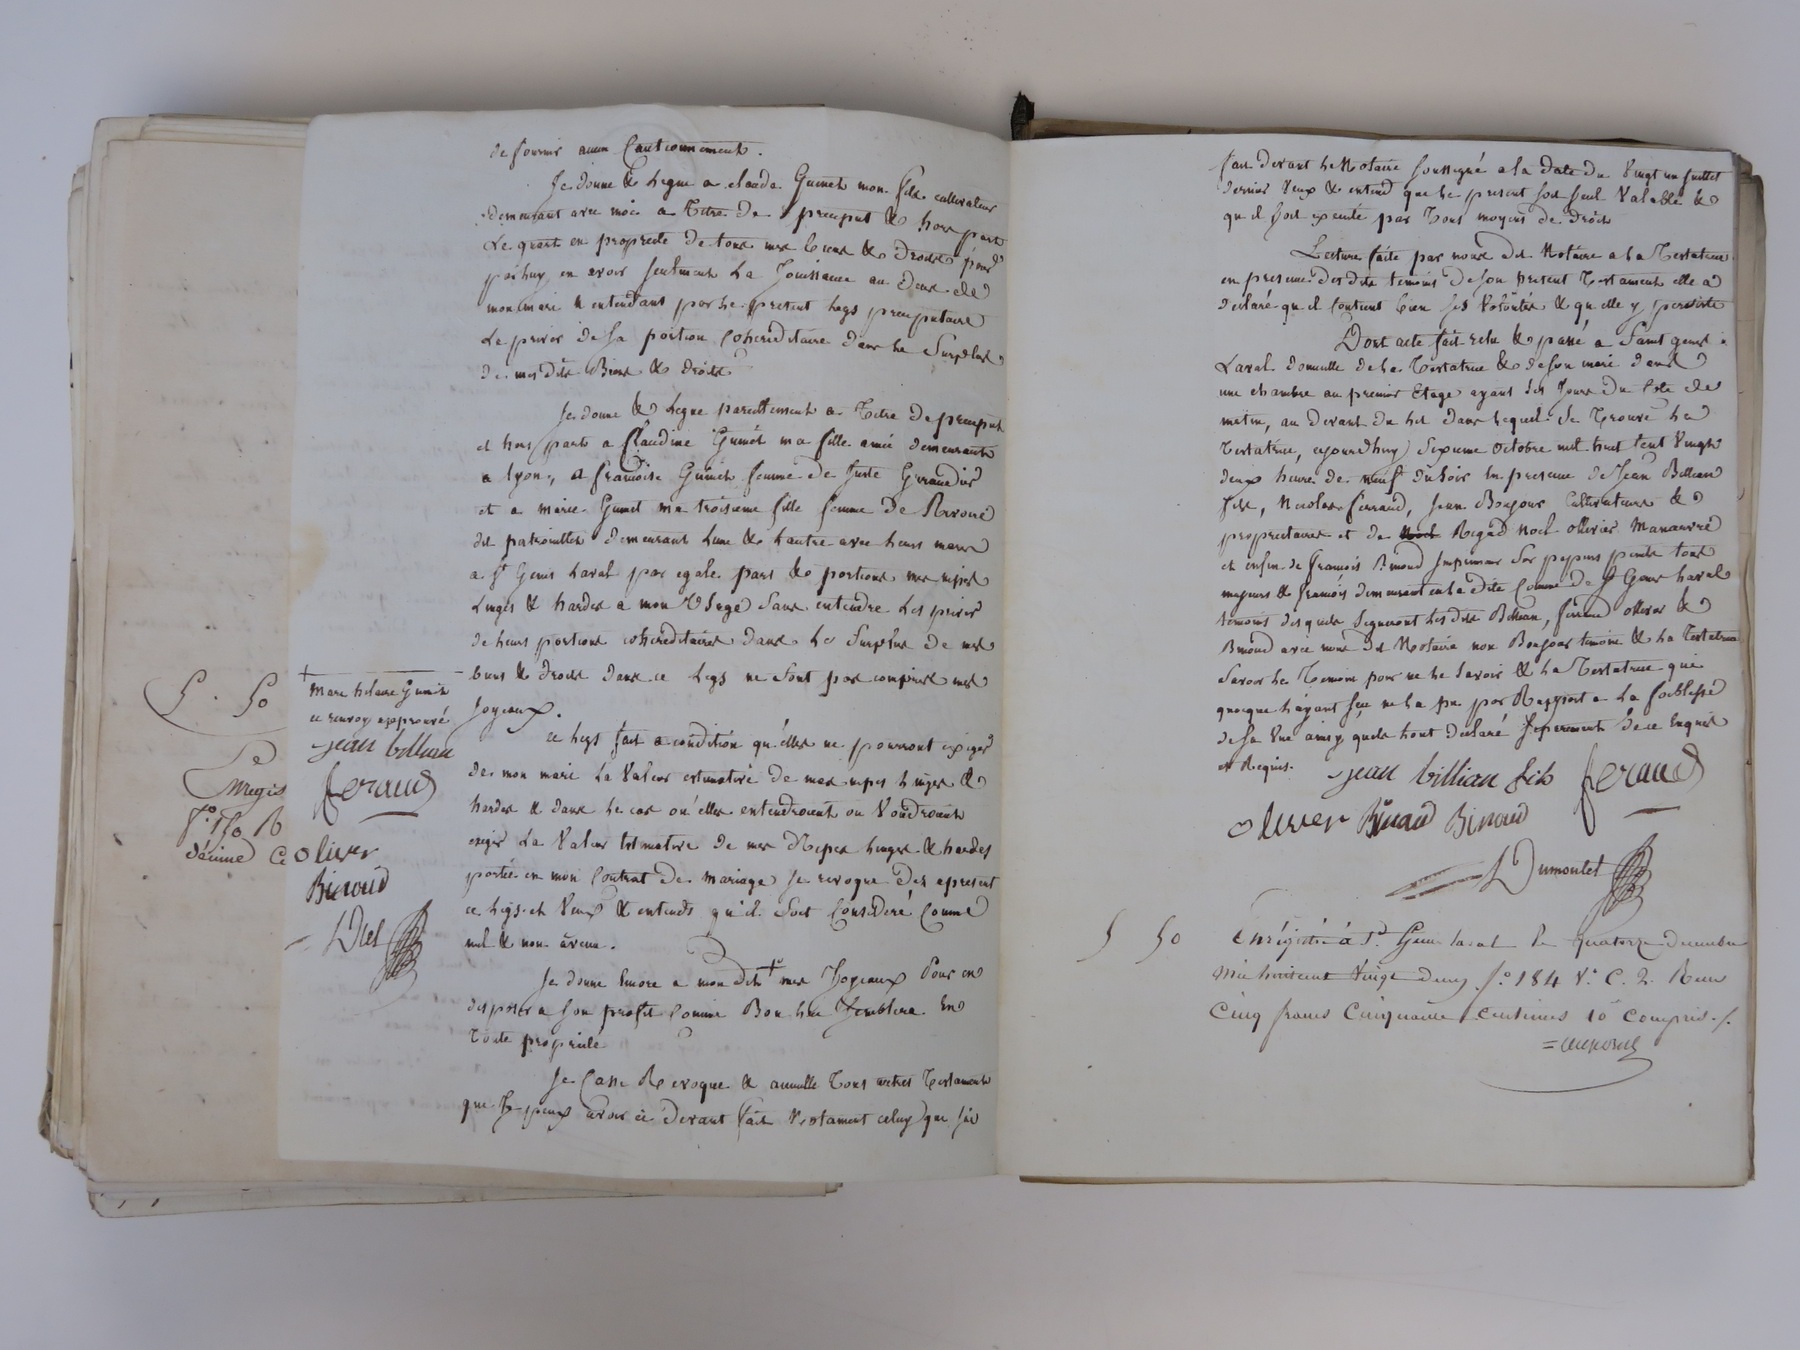 de fournir aucun Cautionnement.
Je donne & Legue a claude Guinet mon fils cultivateur
demeurant avec moi a Titre de preciput & hors part
Le quart en propriete de tous mes biens & droits pour
par luy en avoir seulment La Jouissance au deces de
mon mari n'entendant par le present Legs preciputaire
Le priver de sa portion Cohereditaire dans le Surplus
de mes dits Biens & droits
Je donne & Legue pareillement a Titre de preciput
et hors part a Claudine Guinet ma fille ainée demeurant
a lyon, a francoise Guinet femme de Juste Giraudier
et a marie Guinet ma troisieme fille femme de
dit patrouillet demeurant Lune & Lautre avec Leurs maris
a St Genis Laval par egale part & portions mes nipes
Linges & hardes a mon Usage Sans entendre Les priver
de Leurs portions cohereditaires dans Le Surplus de mes
biens & droits dans ce Legs ne Sont pas compris mes
Joyeaux.
Ce Legs fait a condition qu'elles ne pourront exiger
de mon mari La Valeur estimative de mes nipes Linges &
hardes & dans le cas où elles entendroient ou Voudroient
exiger La Valeur Estimative de mes Nipes Linges & hardes
portée en mon Contrat de mariage Je revoque des apresent
ce Legs et Veux & entends qu'il Soit Consideré Comme
nul & non avenu.
Je donne Encore a mon dit + mes Joyeaux Pour en
disposer a Son profit Comme Bon Luy Semblera En
Toute propriété
Je Casse Revoque & annulle Tous autres Testaments
que Je peux avoir ci devant fait Notament celuy que J'ai
+
Mari hilaire Guinet
ce renvoy approuvé
jean billian
feraud
olivier
Binoud
Dlet
5. 50
Enregis
fo. 170 R
décime C
fait devant Le Notaire Soussigné a la Date du Vingt un Juillet
dernier Veux & entend que le present Soit Seul Valable &
qu il Soit executé par Tous moyens de droit
Lecture faite par nous dit Notaire a la Testatrice
en presence desdits temoins de Son present Testament elle a
declaré qu il Contient bien Ses Volontés & qu elle y persiste
Dont acte fait relu & passé a Saint genis
Laval domicille de La Testatrice & de Son mari dans
une chambre au premier Etage ayant Ses Jours du Coté de
matin, au devant du lit dans lequel Se Trouve La
Testatrice, aujourdhuy Sixieme octobre mil huit Cent Vingt
deux heure de neuf du Soir En presence de Jean Billian
fils, Nicolas ferraud, Jean Bonjour Cultivateurs &
proprietaires et de Noel Rigad Noel ollivier Manœuvre
et enfin de francois Binoud Imprimeur Sur papiers peints tous
majeurs & francois demeurant en la dite Comne de St Genis Laval
temoins desquels Signeront Les dits Billian, ferraud ollivier &
Binoud avec nous dit Notaire non Bonjour temoin & La Testatrice
Savoir Le Temoin pour ne le Savoir & La Testatrice qui
quoique Layant Sçu ne la pu par Rapport a La foiblesse
de Sa Vue ainsy quils Lont declaré Separement de ce Enquis
et Requis.
jean billian fils feraud
olivier Binaud Binoud
Dumontet
5 50
Enrégistré à St. Genis laval le quatorze decembre
mil huit cent vingt deux fo. 184 Vo. C. 2. Recu
Cinq francs Cinquante Centimes 10e Compris./.